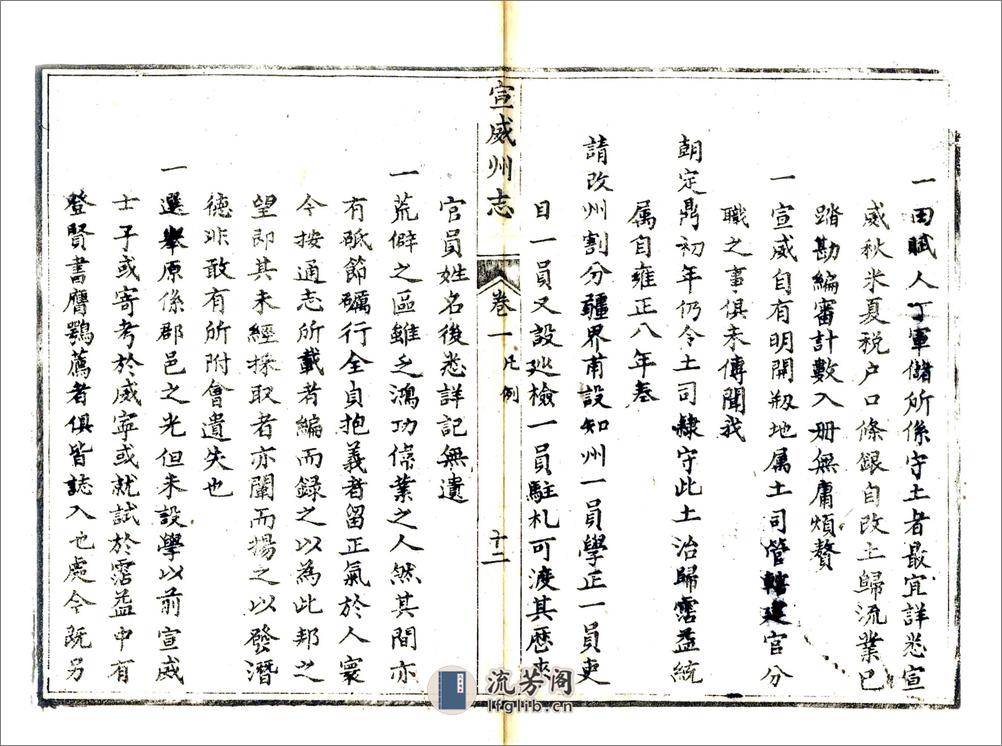 一田賦人丁軍儲所係守土者最宜詳悉宣
威秋米夏稅户口條銀自改土歸流業已
踏勘編審計數入册無庸煩贅
一宣威自有明開剏地属土司管轄建官分
職之事俱未傳聞我
朝定鼎初年仍令土司隸守此土治歸霑益統
属自雍正八年奏
請改州割分疆界甫設知州一員學正一員吏
目一員又設廵檢一員駐札可渡其歷來
宣威州志 卷一 凡例 十二
官員姓名後悉詳記無遺
一荒僻之區雖乏鴻功偉業之人然其間亦
有砥節礪行全貞抱義者留正氣於人寰
今按通志所載者編而録之以為此邦之
望即其未經採取者亦闡而揚之以發潛
德非敢有所附會遺失也
一選舉原係郡邑之光但未設學以前宣威
士子或寄考於威寧或就試於霑益中有
登賢書膺鶚薦者俱皆誌入也處今既另
流芳阁
lfglib.cn